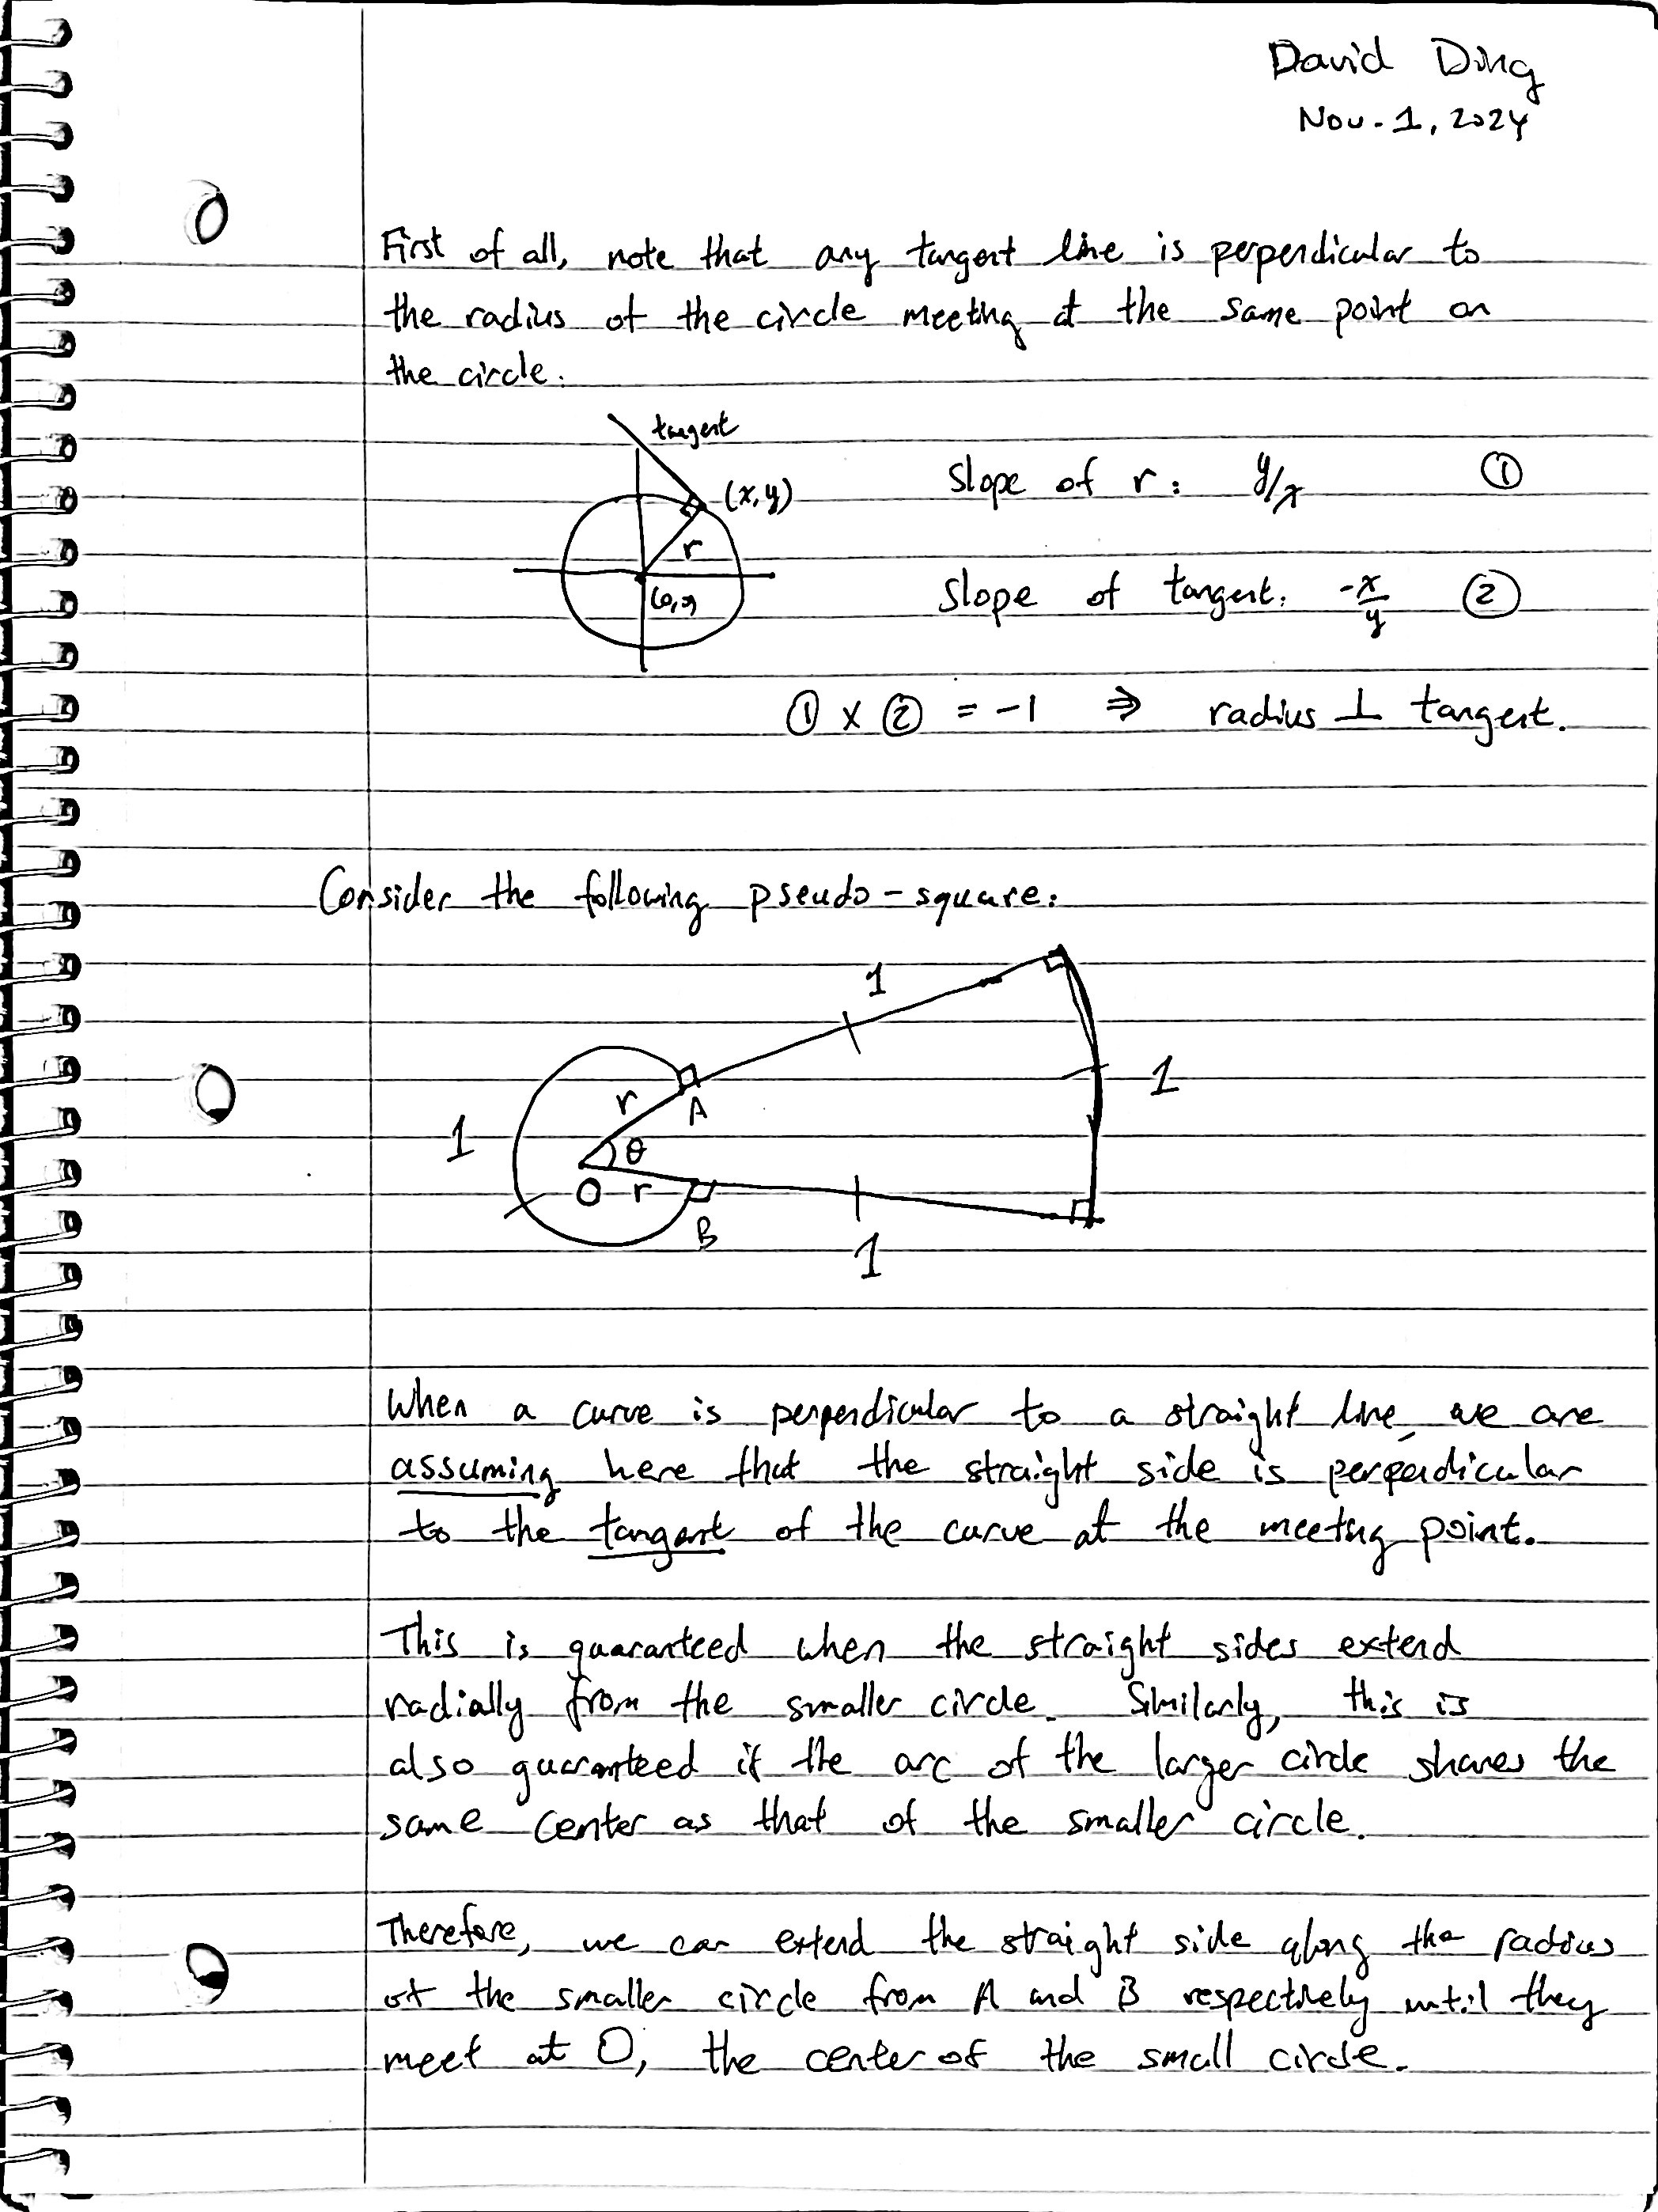 David Ding
Nov. 1, 2024
First of all, note that any tangent line is perpendicular to
the radius of the circle meeting at the same point on
the circle.
tangent
(x, y)
r
(0,0)
Slope of r: y/x ①
Slope of tangent: -x/y ②
① × ② = -1 ⇒ radius ⊥ tangent.
Consider the following pseudo-square:
1
1
1
r
A
θ
O r
B
1
When a curve is perpendicular to a straight line, we are
assuming here that the straight side is perpendicular
to the tangent of the curve at the meeting point.
This is guaranteed when the straight sides extend
radially from the smaller circle. Similarly, this is
also guaranteed if the arc of the larger circle shares the
same center as that of the smaller circle.
Therefore, we can extend the straight side along the radius
of the smaller circle from A and B respectively until they
meet at O, the center of the small circle.